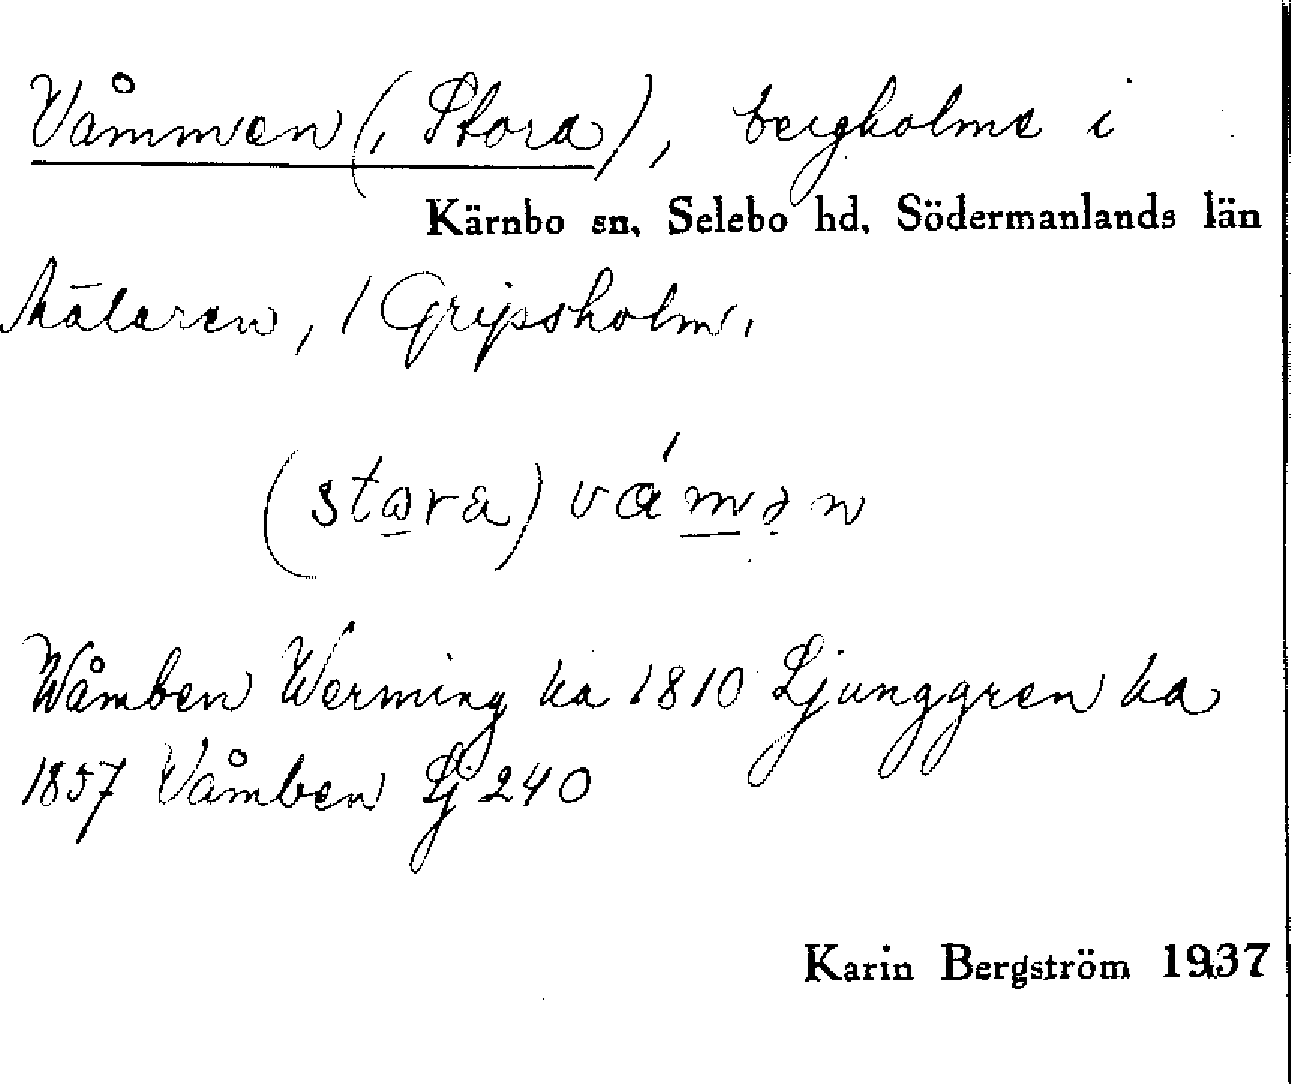 Våmmen (, Stora), bergholme i
Kärnbo sn, Selebo hd, Södermanlands län
Mälaren, / Gripsholm.
(stora) våmen
Wåmben Werming ka 1810 Ljunggren ka
1857 Våmben Lj 240
Karin Bergström 1937